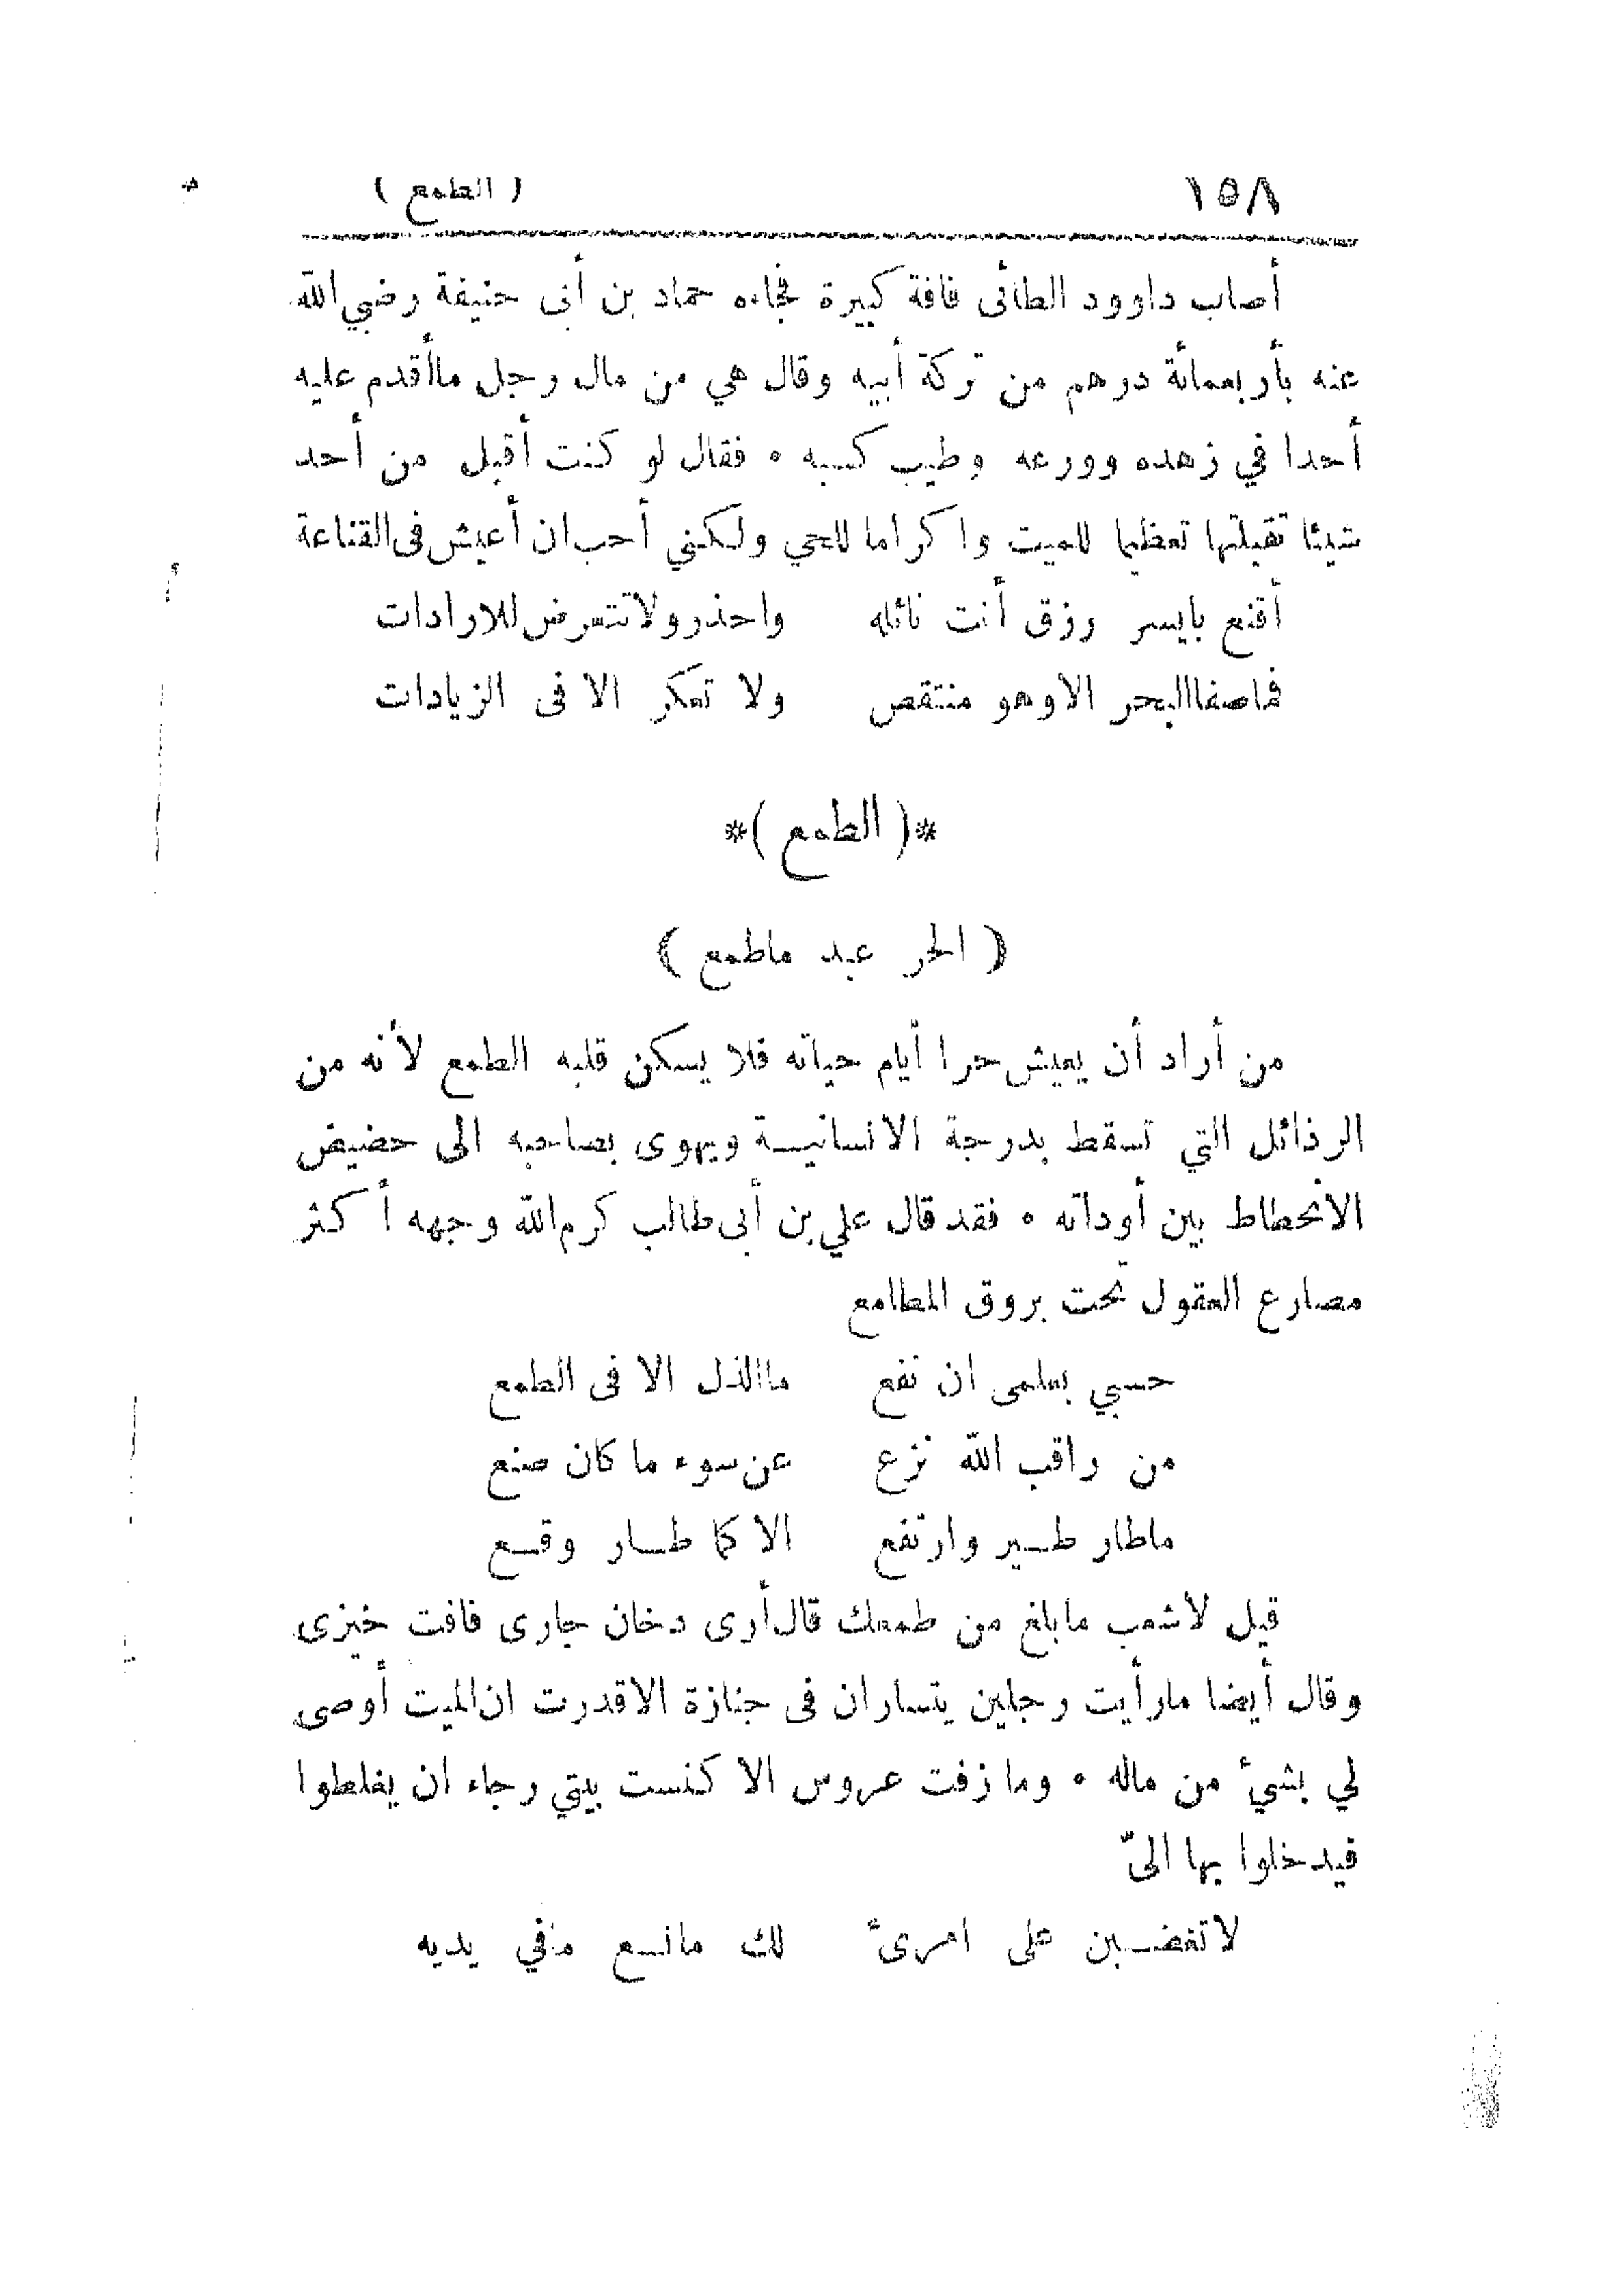 ١٥٨ ( الطمع )
أصاب داوود الطائى فاقة كبيرة فجاءه حماد بن أبى حنيفة رضي الله
عنه بأربعمائة درهم من تركة أبيه وقال هي من مال رجل ماأقدم عليه
أحدا في زهده وورعه وطيب كسبه ٠ فقال لو كنت أقبل من أحد
شيئا تقبلتها تعظيما للميت واكراما للحي ولكني أحب ان أعيش فى القناعة
أقنع بايسر رزق أنت نائله واحذر ولا تتعرض للارادات
فماصفا البحر الا وهو منتقص ولا تعكر الا فى الزيادات
*( الطمع )*
( الحر عبد ماطمع )
من أراد أن يعيش حرا أيام حياته فلا يسكن قلبه الطمع لأنه من
الرذائل التي تسقط بدرجة الانسانيـة ويهوى بصاحبه الى حضيض
الانحطاط بين أوداته ٠ فقد قال علي بن أبى طالب كرم الله وجهه أكثر
مصارع العقول تحت بروق المطامع
حسبي بعلمى ان نفع ماالذل الا فى الطمع
من راقب الله نزع عن سوء ما كان صنع
ماطار طـير وارتفع الا كما طـار وقـع
قيل لاشعب مابلغ من طمعك قال أرى دخان جارى فافت خبزى
وقال أيضا مارأيت رجلين يتساران فى جنازة الا قدرت ان الميت أوصى
لي بشئ من ماله ٠ وما زفت عروس الا كنست بيتي رجاء ان يغلطوا
فيدخلوا بها اليّ
لا تغضـبن على امرىٔ لك مانـع مافي يديه